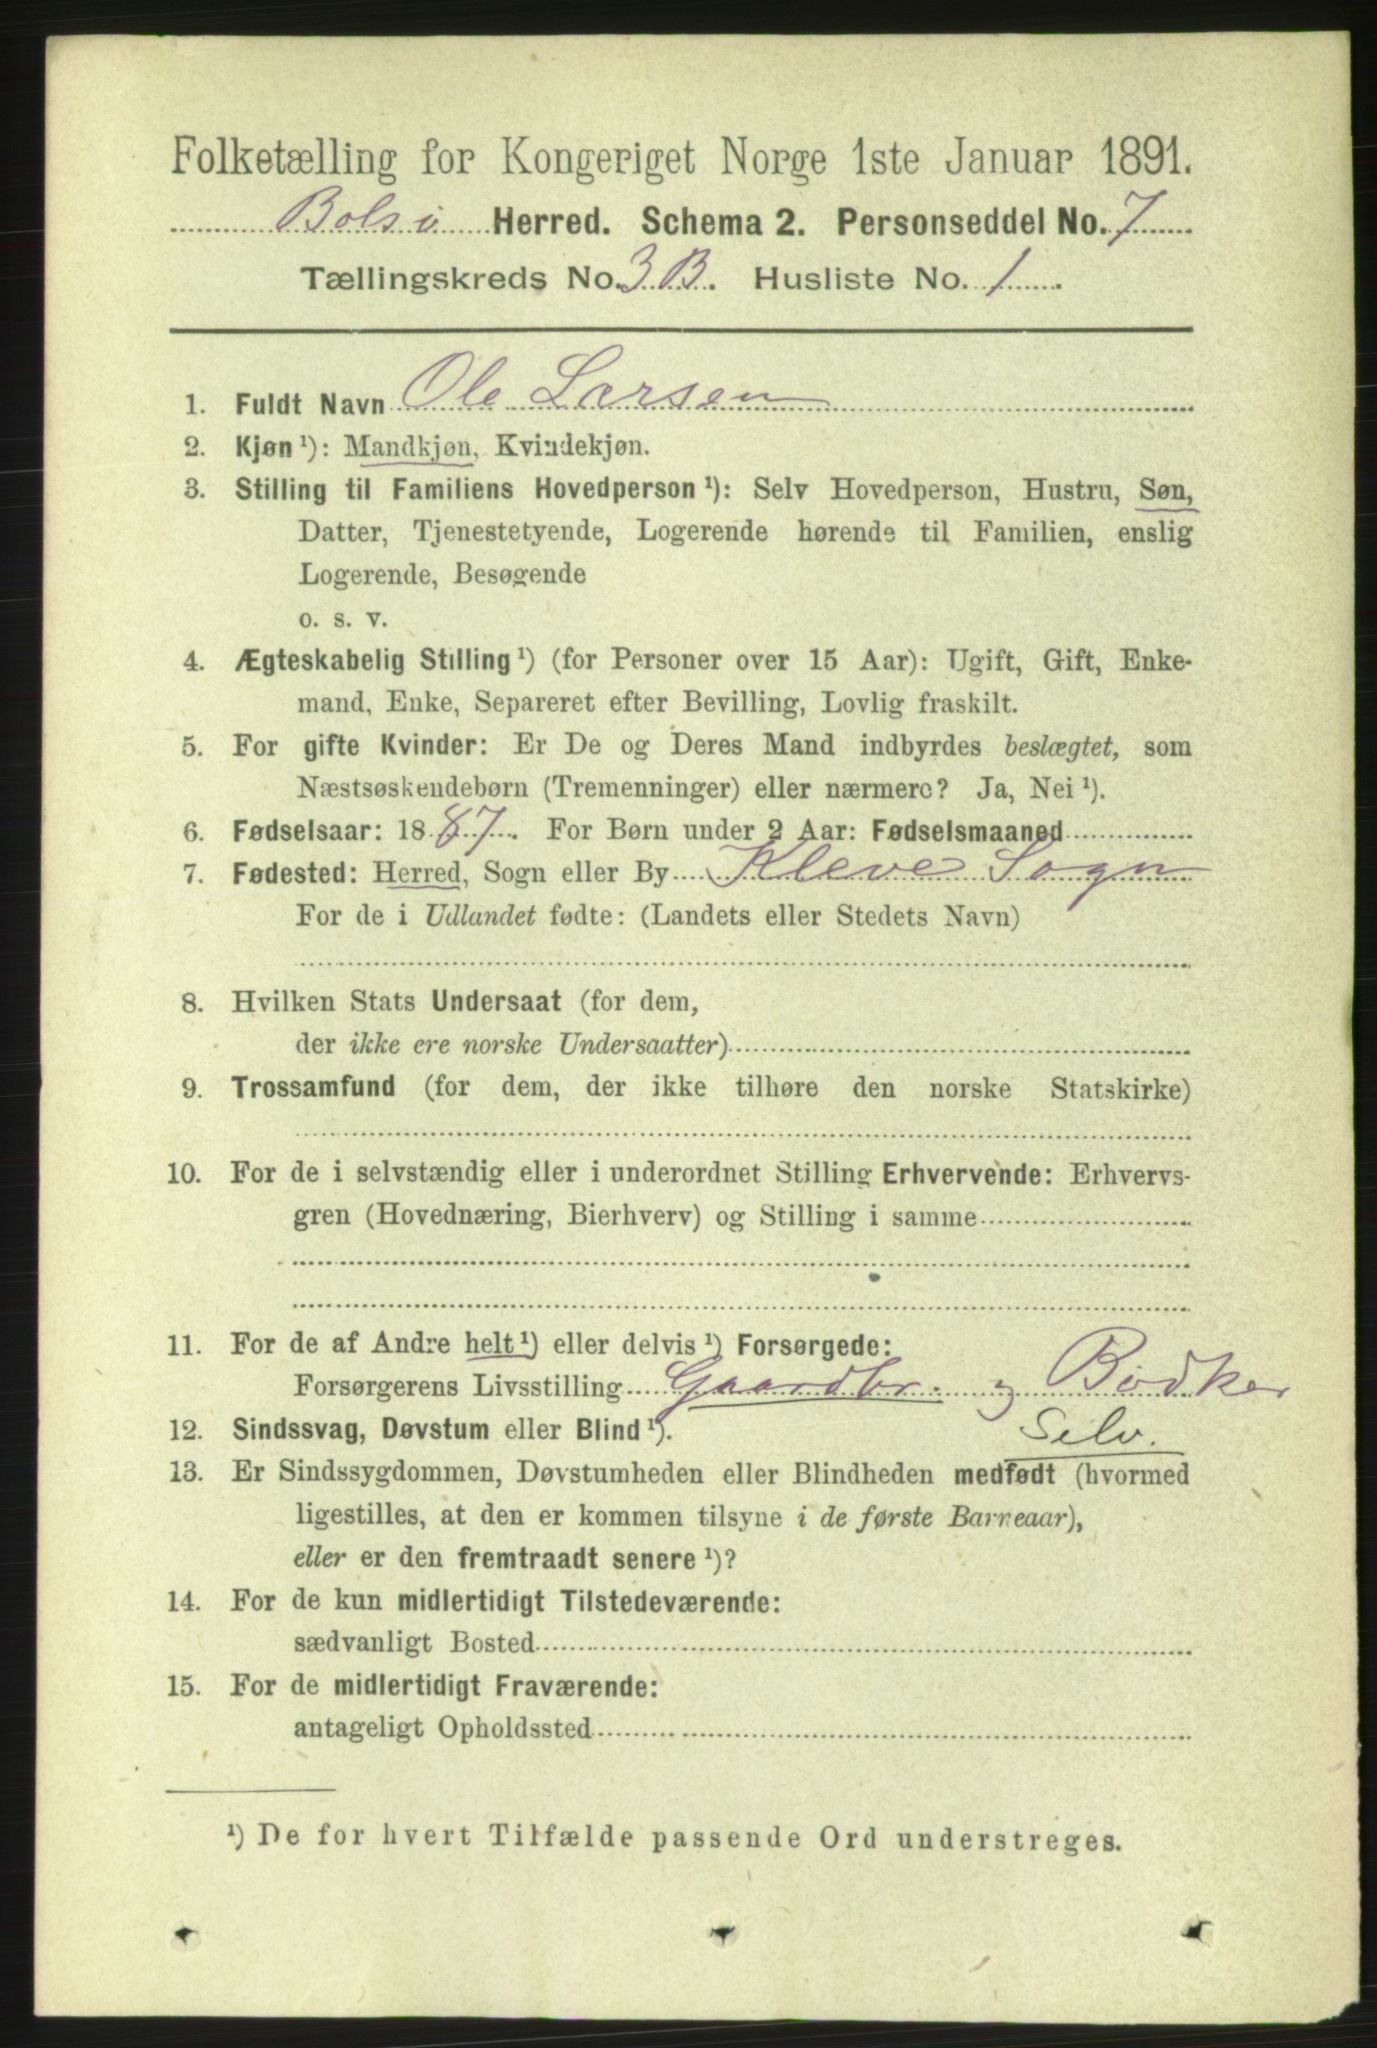 Folketælling for Kongeriget Norge 1ste Januar 1891.
Bolsø Herred. Schema 2. Personseddel No. 7
Tællingskreds No. 3 B. Husliste No. 1
1. Fuldt Navn Ole Larsen
2. Kjøn ¹): Mandkjøn, Kvindekjøn.
3. Stilling til Familiens Hovedperson ¹): Selv Hovedperson, Hustru, Søn,
Datter, Tjenestetyende, Logerende hørende til Familien, enslig
Logerende, Besøgende
o. s. v.
4. Ægteskabelig Stilling ¹) (for Personer over 15 Aar): Ugift, Gift, Enke-
mand, Enke, Separeret efter Bevilling, Lovlig fraskilt.
5. For gifte Kvinder: Er De og Deres Mand indbyrdes beslægtet, som
Næstsøskendebørn (Tremenninger) eller nærmere? Ja, Nei ¹).
6. Fødselsaar: 1887. For Børn under 2 Aar: Fødselsmaaned
7. Fødested: Herred, Sogn eller By Kleve Sogn
For de i Udlandet fødte: (Landets eller Stedets Navn)
8. Hvilken Stats Undersaat (for dem,
der ikke ere norske Undersaatter)
9. Trossamfund (for dem, der ikke tilhøre den norske Statskirke)
10. For de i selvstændig eller i underordnet Stilling Erhvervende: Erhvervs-
gren (Hovednæring, Bierhverv) og Stilling i samme
11. For de af Andre helt ¹) eller delvis ¹) Forsørgede:
Forsørgerens Livsstilling Gaardbr. og Bødker
12. Sindssvag, Døvstum eller Blind ¹). Selv.
13. Er Sindssygdommen, Døvstumheden eller Blindheden medfødt (hvormed
ligestilles, at den er kommen tilsyne i de første Barneaar),
eller er den fremtraadt senere ¹)?
14. For de kun midlertidigt Tilstedeværende:
sædvanligt Bosted
15. For de midlertidigt Fraværende:
antageligt Opholdssted
¹) De for hvert Tilfælde passende Ord understreges.